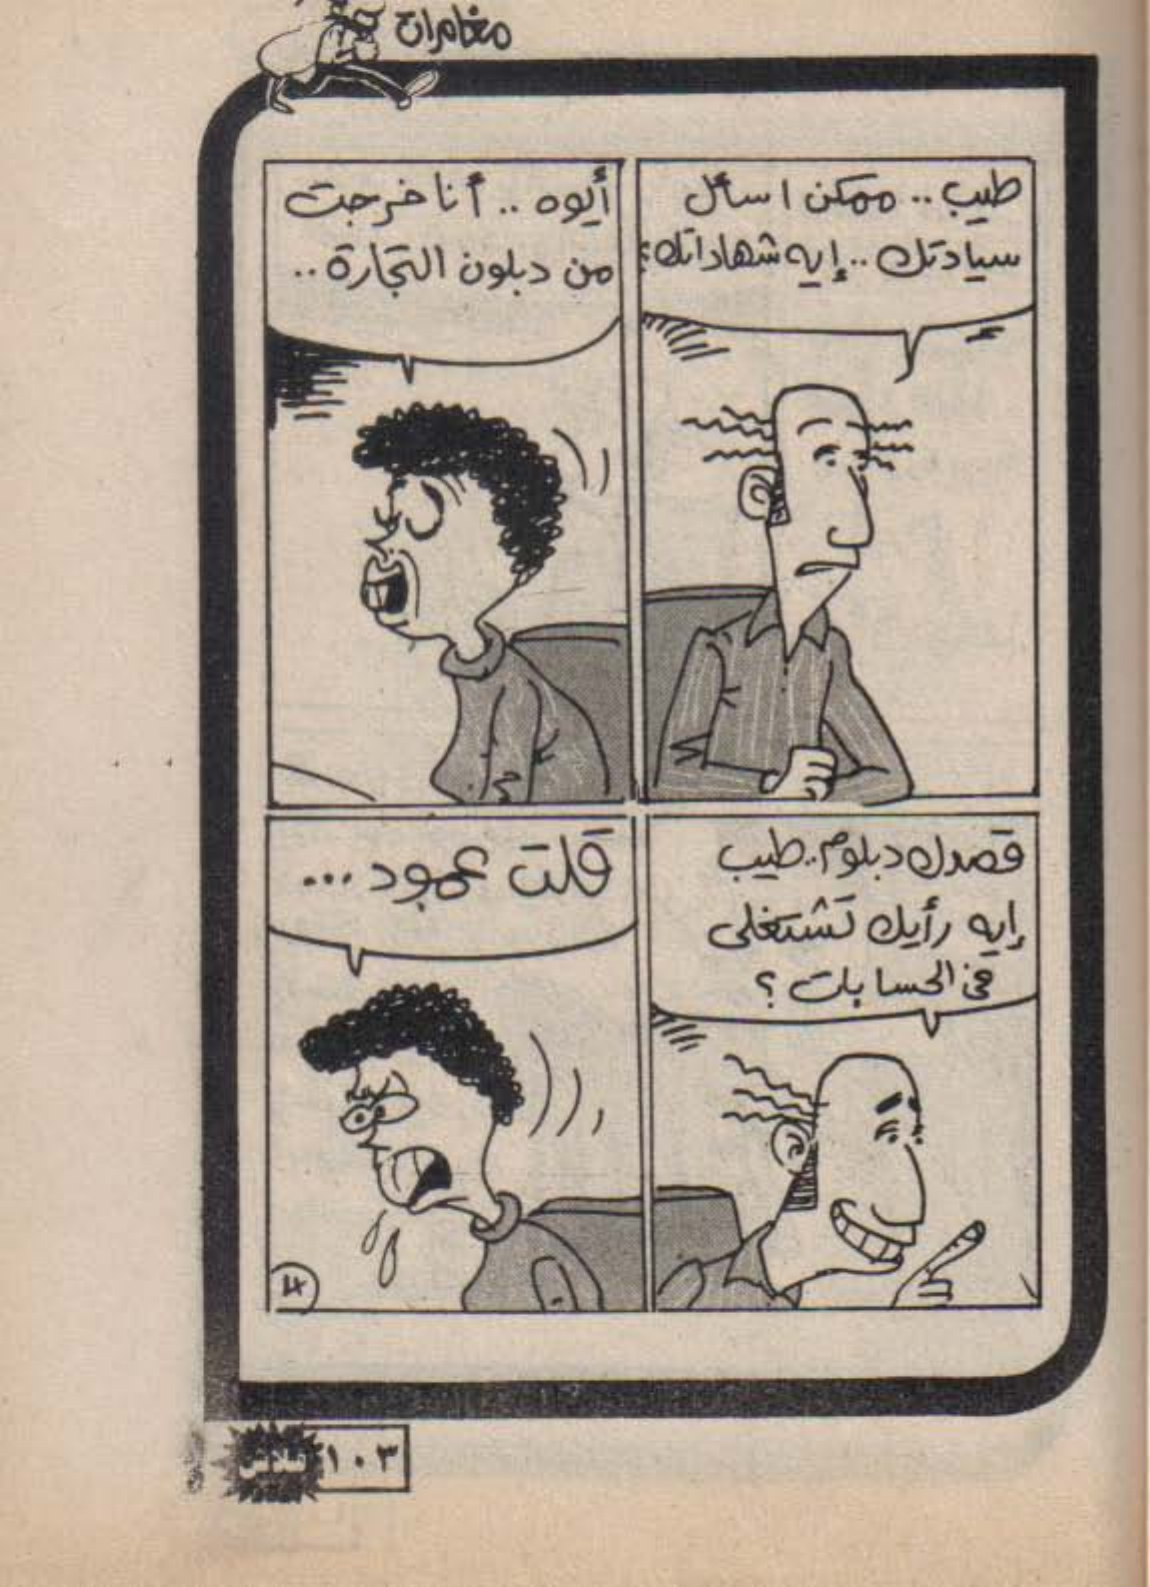 مغامرات
طيب.. ممكن اسأل
سيادتك.. إيه شهاداتك؟
أيوه.. أنا خرجت
من دبلون التجارة..
قصدك دبلوم.. طيب
إيه رأيك تشتغلى
فى الحسابات؟
قلت عمود...
فلاش ١٠٣